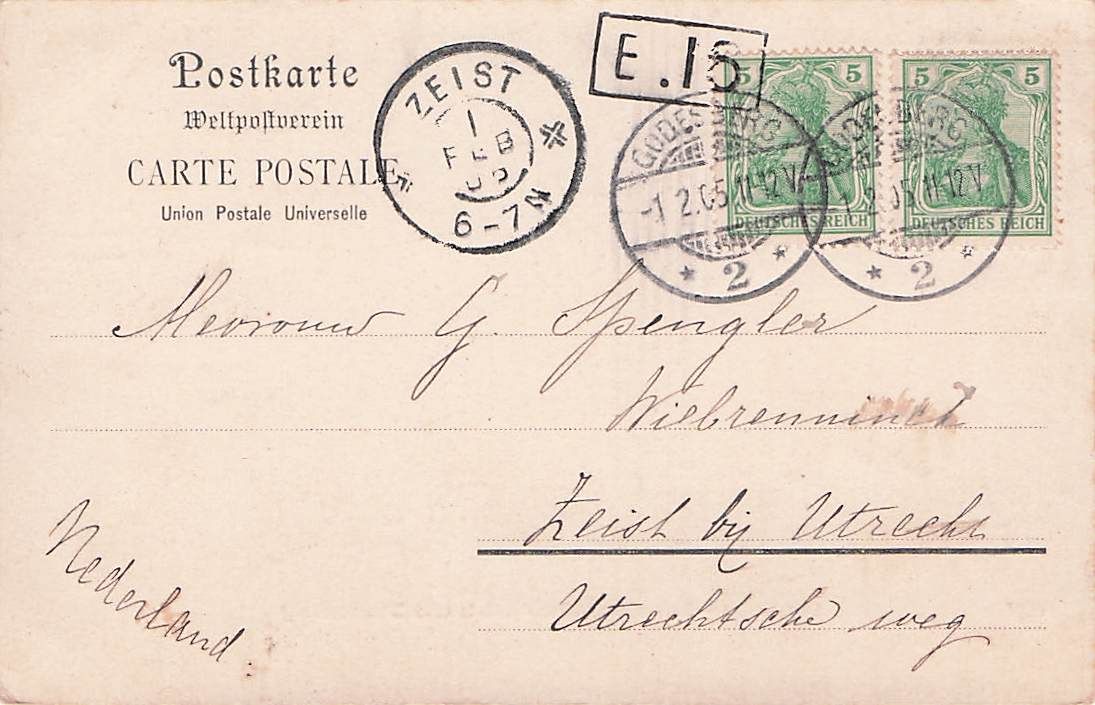 Postkarte
Weltpostverein
CARTE POSTALE
Union Postale Universelle
ZEIST
1
FEB
05
6-7N
E.16
5 5
DEUTSCHES REICH
5 5
DEUTSCHES REICH
GODESBERG
-1.2.05.11-12V
* 2 *
GODESBERG
-1.2.05.11-12V
* 2 *
Mevrouw G. Spengler
Zeist bij Utrecht
Utrechtsche weg
Nederland